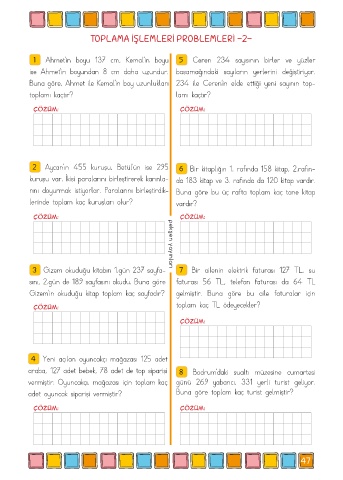 TOPLAMA İŞLEMLERİ PROBLEMLERİ -2-
1 Ahmet'in boyu 137 cm, Kemal'in boyu
ise Ahmet'in boyundan 8 cm daha uzundur.
Buna göre, Ahmet ile Kemal'in boy uzunlukları
toplamı kaçtır?
ÇÖZÜM:
2 Aycan'ın 455 kuruşu, Betül'ün ise 295
kuruşu var. İkisi paralarını birleştirerek karınla-
rını doyurmak istiyorlar. Paralarını birleştirdik-
lerinde toplam kaç kuruşları olur?
ÇÖZÜM:
3 Gizem okuduğu kitabın 1.gün 237 sayfa-
sını, 2.gün de 189 sayfasını okudu. Buna göre
Gizem'in okuduğu kitap toplam kaç sayfadır?
ÇÖZÜM:
4 Yeni açılan oyuncakçı mağazası 125 adet
araba, 127 adet bebek, 78 adet de top siparişi
vermiştir. Oyuncakçı mağazası için toplam kaç
adet oyuncak siparişi vermiştir?
ÇÖZÜM:
pelikşen yayınları
5 Ceren 234 sayısının birler ve yüzler
basamağındaki sayıların yerlerini değiştiriyor.
234 ile Ceren'in elde ettiği yeni sayının top-
lamı kaçtır?
ÇÖZÜM:
6 Bir kitaplığın 1. rafında 158 kitap, 2.rafın-
da 183 kitap ve 3. rafında da 120 kitap vardır.
Buna göre bu üç rafta toplam kaç tane kitap
vardır?
ÇÖZÜM:
7 Bir ailenin elektrik faturası 127 TL, su
faturası 56 TL, telefon faturası da 64 TL
gelmiştir. Buna göre bu aile faturalar için
toplam kaç TL ödeyecekler?
ÇÖZÜM:
8 Bodrum'daki sualtı müzesine cumartesi
günü 269 yabancı, 331 yerli turist geliyor.
Buna göre toplam kaç turist gelmiştir?
ÇÖZÜM:
47